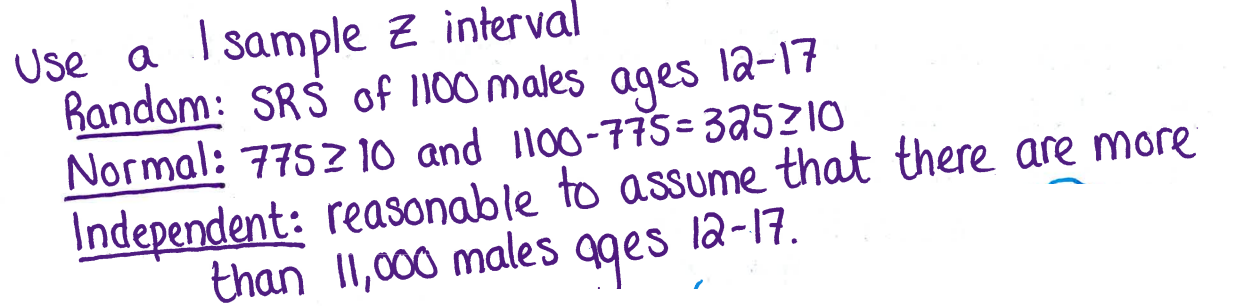 Use a 1 sample Z interval
Random: SRS of 1100 males ages 12-17
Normal: 775≥10 and 1100-775=325≥10
Independent: reasonable to assume that there are more
than 11,000 males ages 12-17.